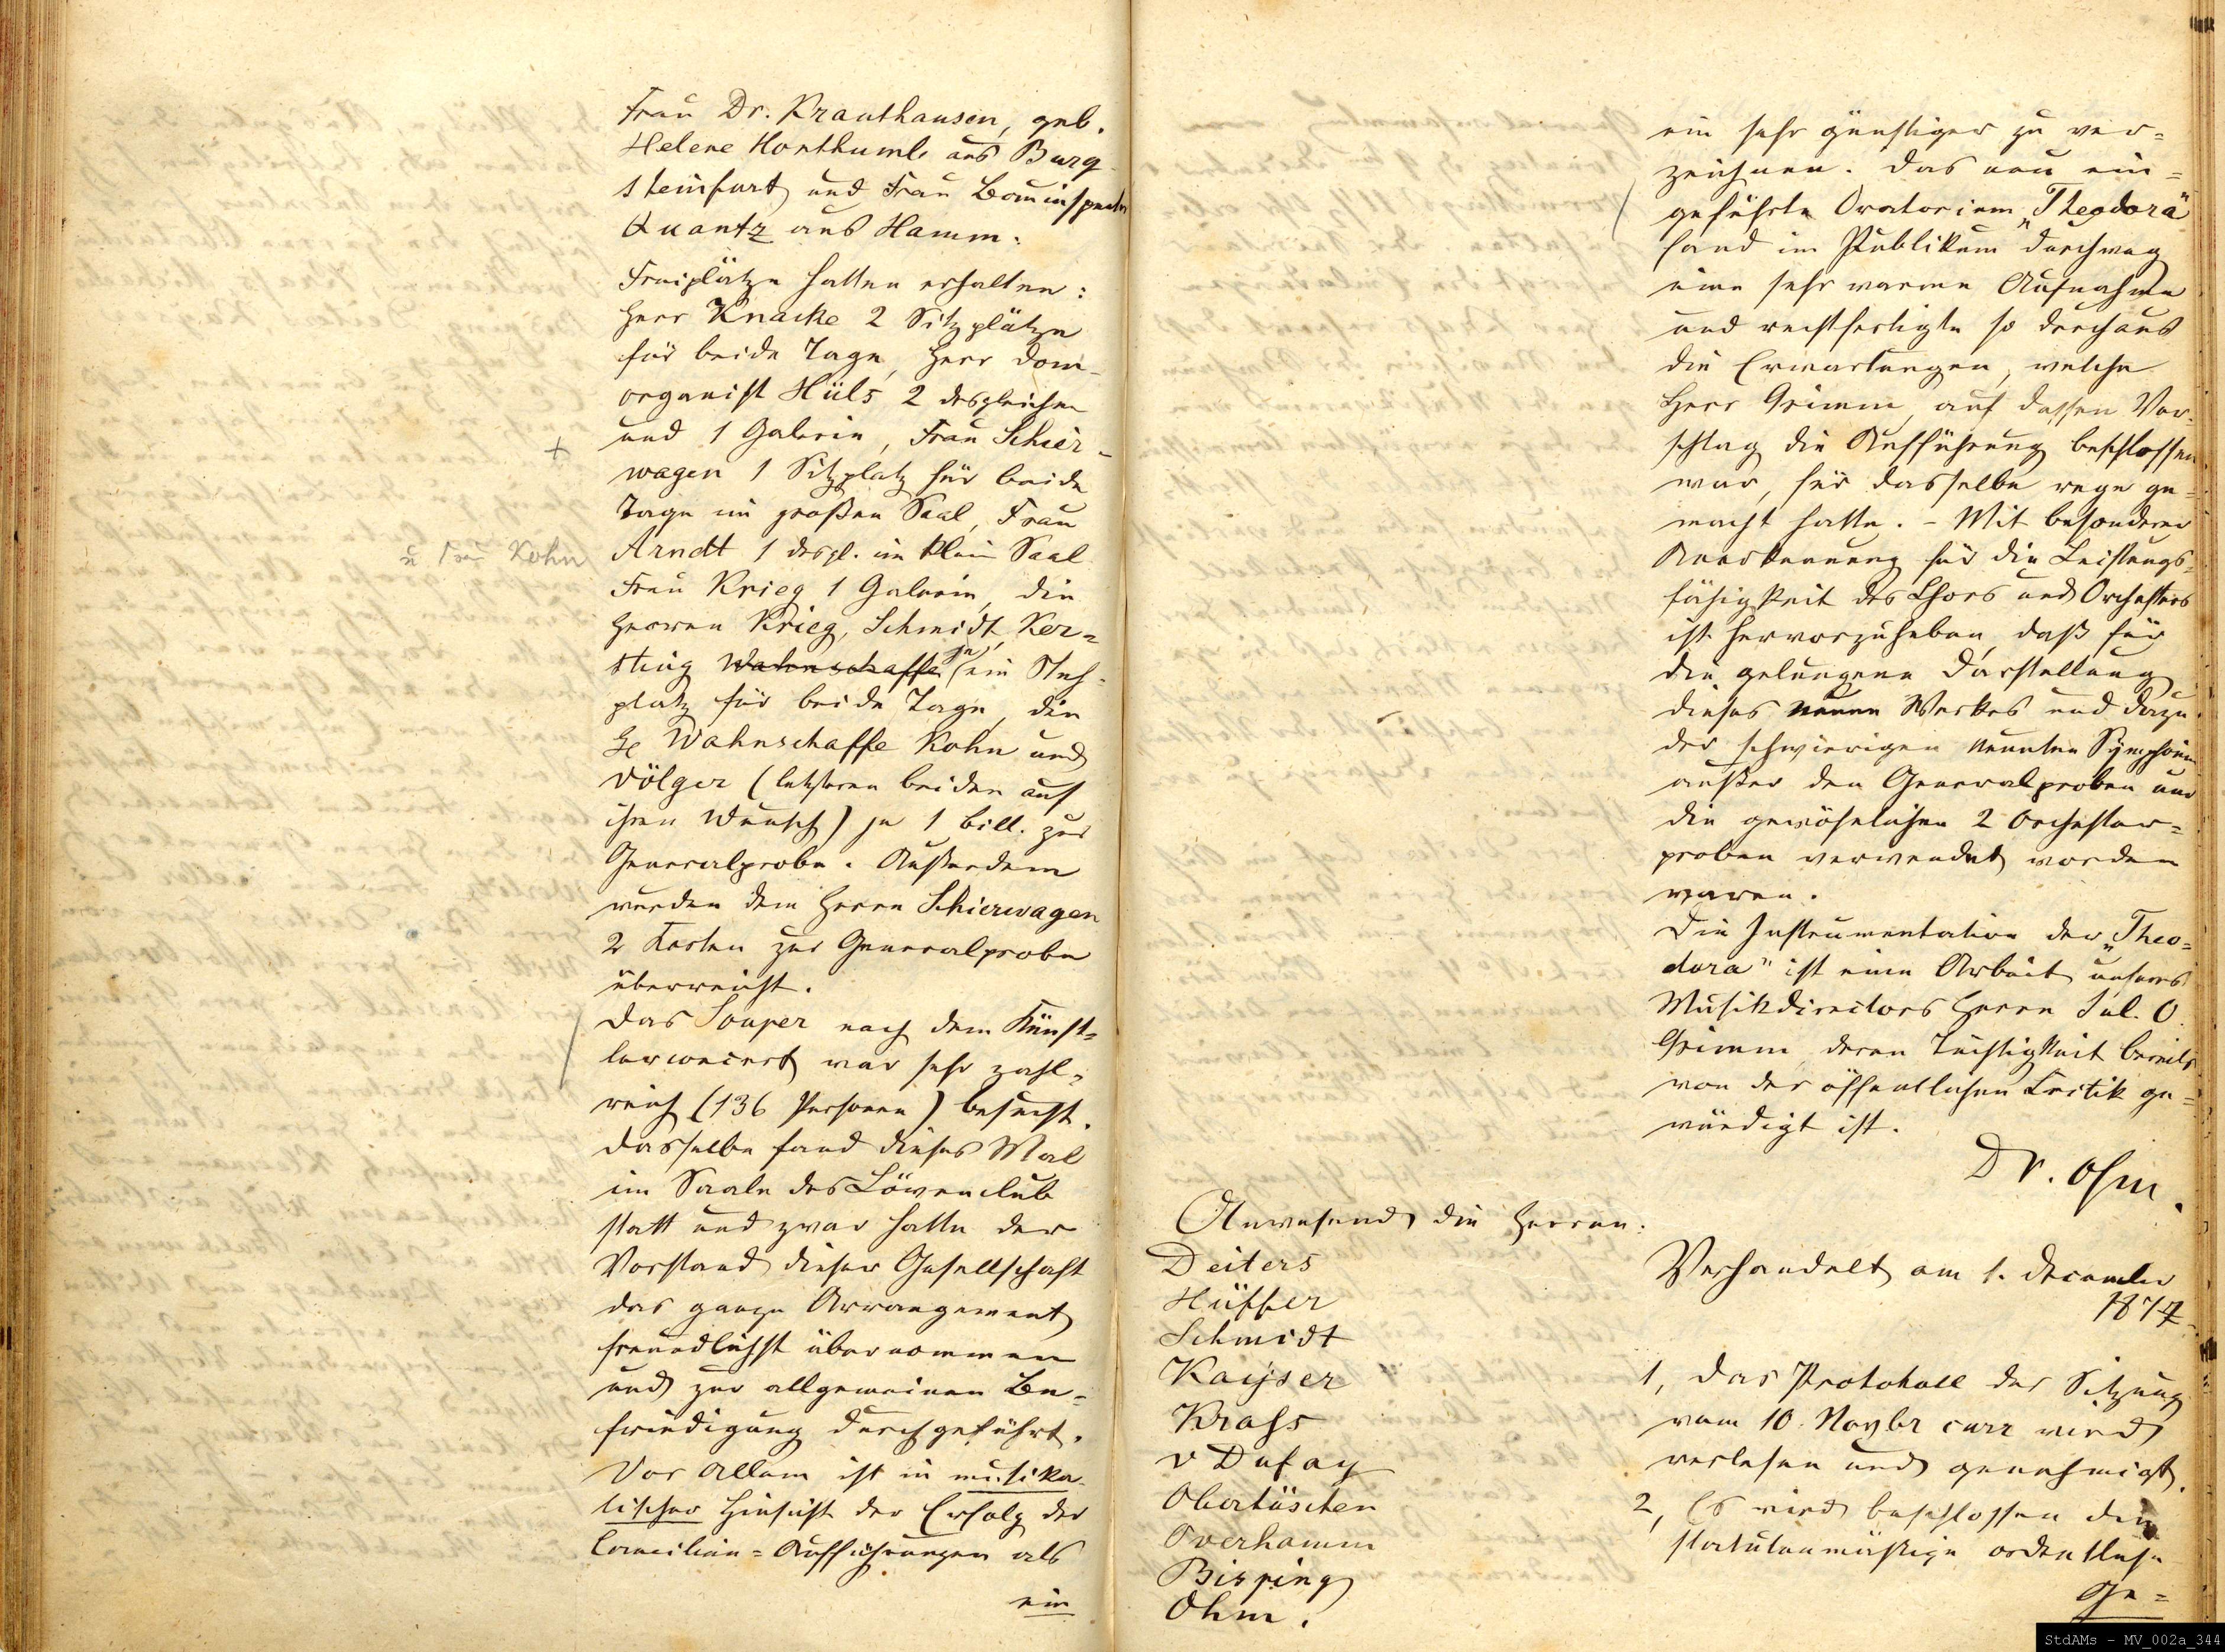 Frau Dr. Krauthausen, geb.
Helene Honthumb aus Burg-
steinfurt und Frau Bauinspector
Quantz aus Hamm.
Freiplätze hatten erhalten:
Herr Knacke 2 Sitzplätze
für beide Tage, Herr Dom-
organist Hüls 2 desgleichen
und 1 Galerie, Frau Schier-
+
wagen 1 Sitzplatz für beide
Tage im großen Saal, Frau
Arndt 1 desgl. im klein Saal
u Frau Kohn
Frau Krieg 1 Galerie, die
Herren Krieg, Schmidt, Ker-
sting Wahnschaffe je ein Steh-
platz für beide Tage, die
H Wahnschaffe Kohn und
Völger (letzteren beiden auf
ihren Wunsch) je 1 Bill. zur
Generalprobe. Außerdem
wurden dem Herrn Schierwagen
2 Karten zur Generalprobe
überreicht.
Das Souper nach dem Künst-
lerconcert war sehr zahl-
reich (136 Personen) besucht.
Dasselbe fand dieses Mal
im Saale des Löwenclub
statt und zwar hatte der
Vorstand dieser Gesellschaft
das ganze Arrangement
freundlichst übernommen
und zur allgemeinen Be-
friedigung durchgeführt.
Vor Allem ist in musika-
lischer Hinsicht der Erfolg der
Caecilien-Aufführungen als
ein
ein sehr günstiger zu ver-
zeichnen. Das neu ein-
geführte Oratorium „Theodora"
fand im Publikum durchweg
eine sehr warme Aufnahme
und rechtfertigte so durchaus
die Erwartungen, welche
Herr Grimm, auf dessen Vor-
schlag die Aufführung beschlossen
war, für dasselbe rege ge-
macht hatte. - Mit besonderer
Anerkennung für die Leistungs-
fähigkeit des Chors und Orchesters
ist hervorzuheben, daß für
die gelungene Darstellung
dieses neuen Werkes und dazu
der schwierigen neunten Symphonie
außer den Generalproben nur
die gewöhnlichen 2 Orchester-
proben verwendet worden
waren.
Die Instrumentation der „Theo-
dora" ist eine Arbeit unseres
Musikdirectors Herrn Jul. O.
Grimm, deren Tüchtigkeit bereits
von der öffentlichen Kritik ge-
würdigt ist.
Dr. Ohm.
Anwesend die Herren:
Deiters
Hüffer
Schmidt
Kayser
Krass
v Dufay
Obertüschen
Overhamm
Bisping
Ohm.
Verhandelt am 1. December
1874
1, Das Protokoll der Sitzung
vom 10. Novbr curr wird
verlesen und genehmigt.
2, Es wird beschlossen die
statutenmäßige ordentliche
Ge-
StdAMs - MV_002a_344